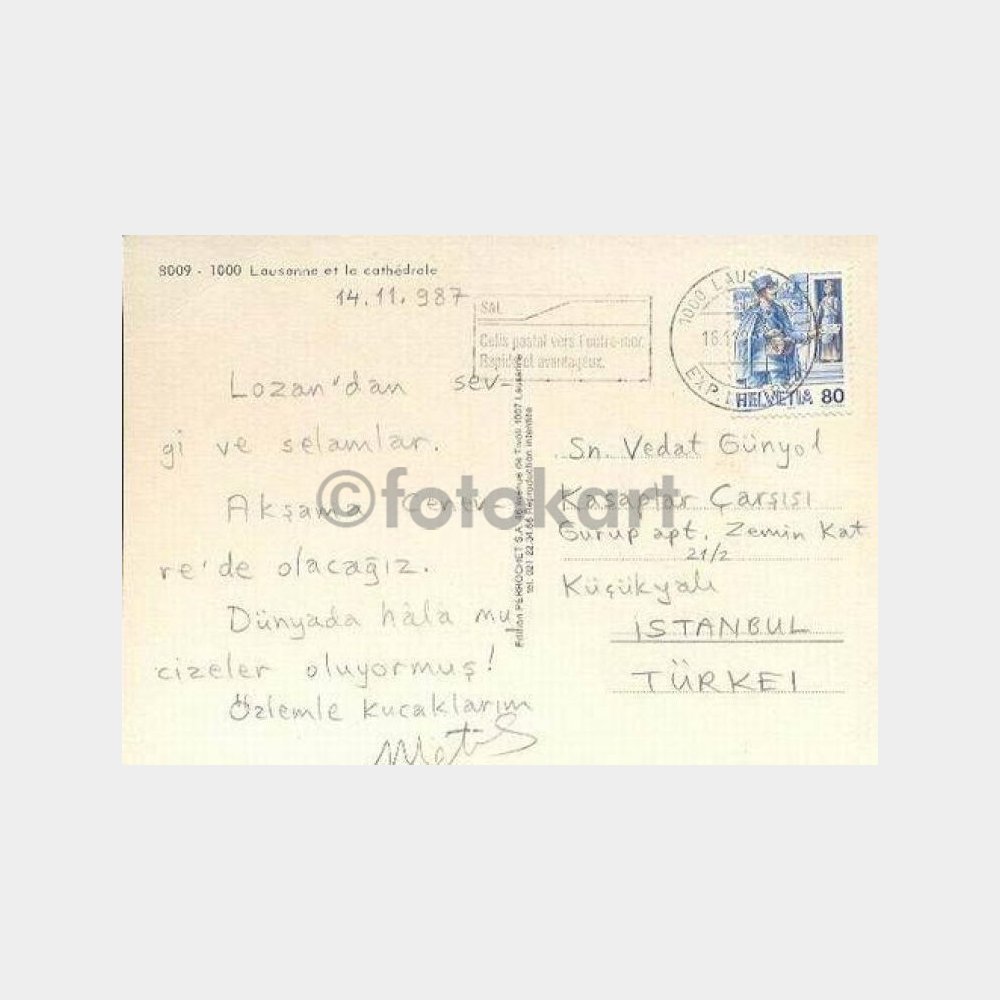 8009 - 1000 Lausanne et la cathédrale
14.11.987
Lozan'dan sev-
gi ve selamlar.
Akşama Cenev-
re'de olacağız.
Dünyada hâlâ mu
cizeler oluyormuş!
Özlemle kucaklarım
SAL
Colis postal vers l'outre-mer.
Rapide et avantageux.
1000 LAUS
16.11
EXP.
HELVETIA 80
Edition PERROCHET S.A. de Tivoli 1007 Lausanne
tél. 021 Reproduction interdite
Sn. Vedat Günyol
Kasaplar Çarşısı
Gurup apt. Zemin Kat
21/2
Küçükyalı
İSTANBUL
TÜRKEI
©fotokart